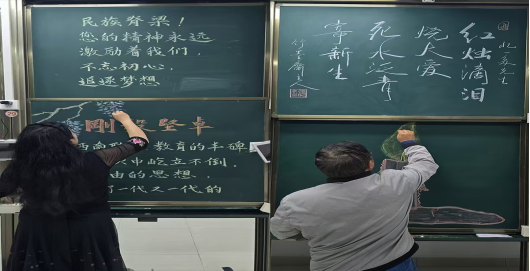 民族脊梁!
您的精神永远
激励着我们,
不忘初心,
追逐梦想
剛 坚卓
西南 教育的丰碑
中屹立不倒,
由的思想,
了一代又一代的
红烛滴泪
烧大爱
死水泛青
寄新生